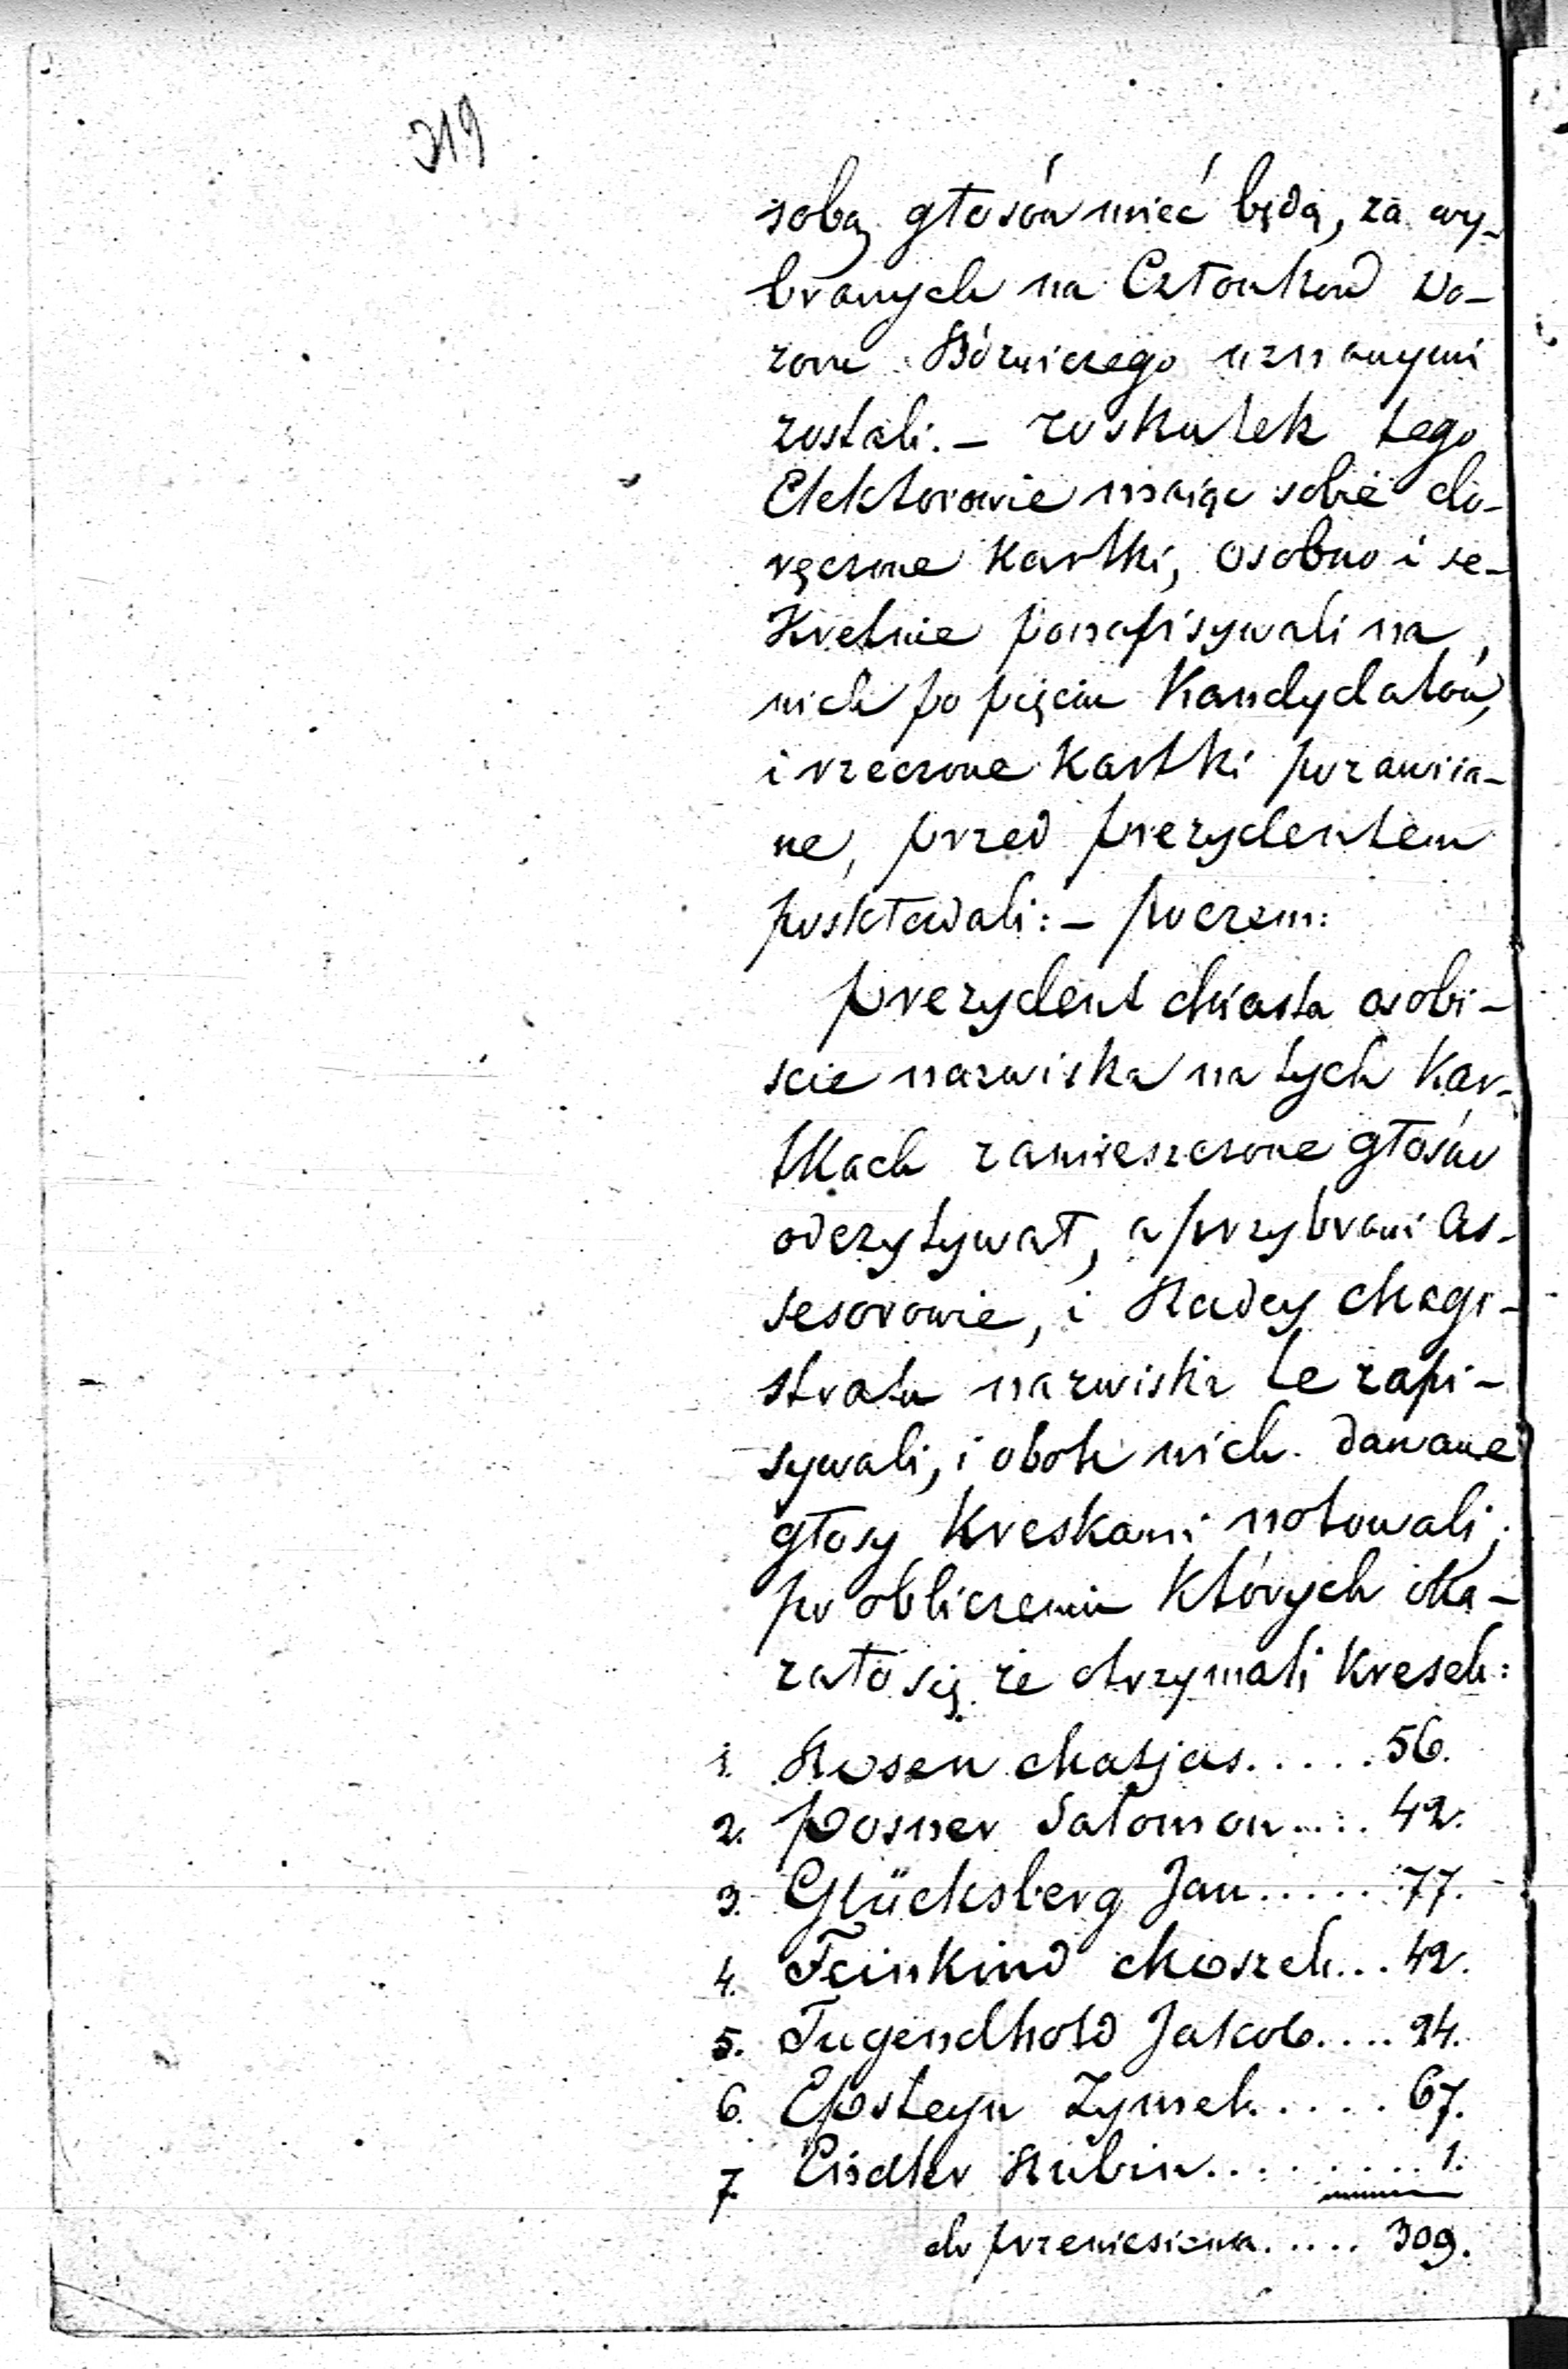 319
sobą głosów mieć będą, za wy-
branych na Członków Do-
zoru Bóżniczego uznanymi
zostali. – wskutek tego
Elektorowie maiąc sobie do-
ręczone kartki, osobno i se-
kretnie ponapisywali na
nich po pięciu Kandydatów,
i rzeczone kartki pozawiia-
ne, przed prezydentem
poskładali: – poczem:
Prezydent Miasta osobi-
scie nazwiska na tych kar-
tkach zamieszczone głosów
odczytywał, a przybrani As-
sesorowie, i Radcy Magi-
stratu nazwiska te zapi-
sywali, i obok nich dawane
głosy kreskami notowali;
po obliczeniu których oka-
zało się że otrzymali kresek:
1. Rosen Matjas ..... 56.
2. Posner Salomon .... 42.
3. Glücksberg Jan ..... 77.
4. Feinkind Moszek ... 42.
5. Tugendhold Jakob .... 24.
6. Epsteyn Zymel ..... 67.
7. Eisdler Rubin ......... 1.
do przeniesienia ..... 309.